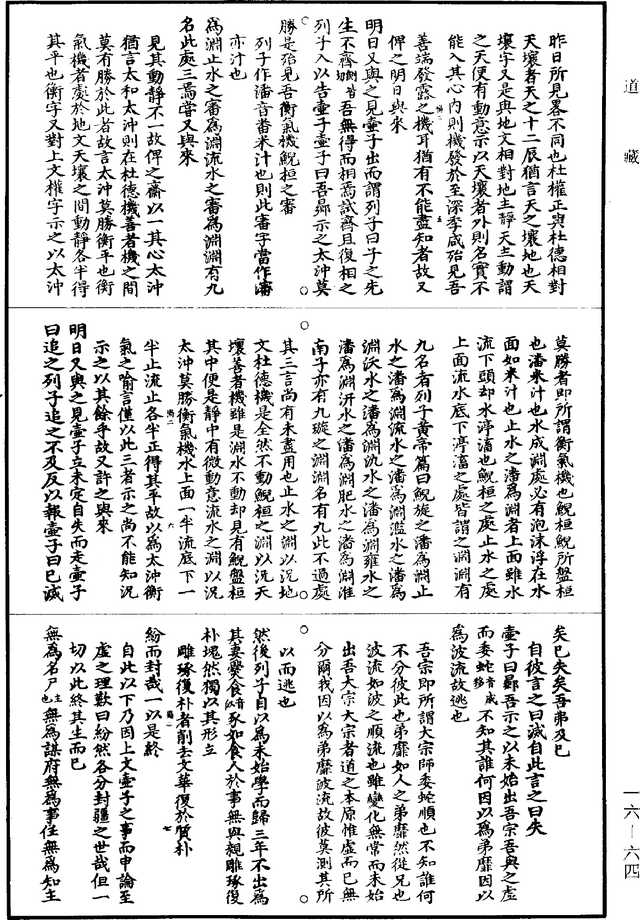 道藏
昨日所見畧不同也杜權正與杜德相對
天壤者天之十二辰猶言天之壤地也天
壤字又是與地文相對地主靜天主動謂
之天便有動意示以天壤者外則名實不
能入其心內則機發於至深季咸殆見吾
善端發露之機耳猶有不能盡知者故又
俾之明日與來
明日又與之見壺子出而謂列子曰子之先
生不齊吾無得而相焉試齊且復相之
列子入以告壺子壺子曰吾鄉示之太沖莫
勝是殆見吾衡氣機鯢桓之審
列子作潘音番米汁也則此審字當作瀋
亦汁也
為淵止水之審為淵流水之審為淵淵有九
名此處三焉嘗又與來
見其動靜不一故俾之齋以一其心太沖
猶言太和太沖則在杜德機善者機之間
莫有勝於此者故言太沖莫勝衡平也衡
氣機者處於地文天壤之間動靜各半得
其平也衡字又對上文權字示之以太沖
莫勝者即所謂衡氣機也鯢桓鯢所盤桓
也潘米汁也水成淵處必有泡沫浮在水
面如米汁也止水之潘為淵者上面雖水
流下頭却水渟滀也鯢桓之處止水之處
上面流水底下渟滀之處皆謂之淵淵有
九名者列子黃帝篇曰鯢旋之潘為淵止
水之潘為淵流水之潘為淵濫水之潘為
淵沃水之潘為淵氿水之潘為淵雍水之
潘為淵汧水之潘為淵肥水之潘為淵淮
南子亦有九璇之淵淵名有九此不過處
其三言尚有未盡用也止水之淵以況地
文杜德機是全然不動鯢桓之淵以況天
壤善者機雖是淵水不動却見有鯢盤桓
其中便是靜中有微動意流水之淵以況
太沖莫勝衡氣機水上面一半流底下一
半止流止各半正得其平故以為太沖衡
氣之喻言僅以此三者示之尚不能知況
示之以其餘乎故又許之與來
明日又與之見壺子立未定自失而走壺子
曰追之列子追之不及反以報壺子曰已滅
矣已失矣吾弗及已
自彼言之曰滅自此言之曰失
壺子曰鄉吾示之以未始出吾宗吾與之虛
而委蛇不知其誰何因以為弟靡因以
為波流故逃也
吾宗即所謂大宗師委蛇順也不知誰何
不分彼此也弟靡如人之弟靡然從兄也
波流如波之順流也雖變化無常而未始
出吾大宗大宗者道之本原惟虛而已無
分爾我因以為弟靡波流故彼莫測其所
以而逃也
然後列子自以為未始學而歸三年不出為
其妻爨食豕如食人於事無與親雕琢復
朴塊然獨以其形立
雕琢復朴者削去文華復於質朴
紛而封哉一以是終
自此以下乃因上文壺子之事而申論至
虛之理歎曰紛然各分封疆之世哉但一
切以此終其生而已
無為名尸主也無為謀府無為事任無為知主
一六—六四